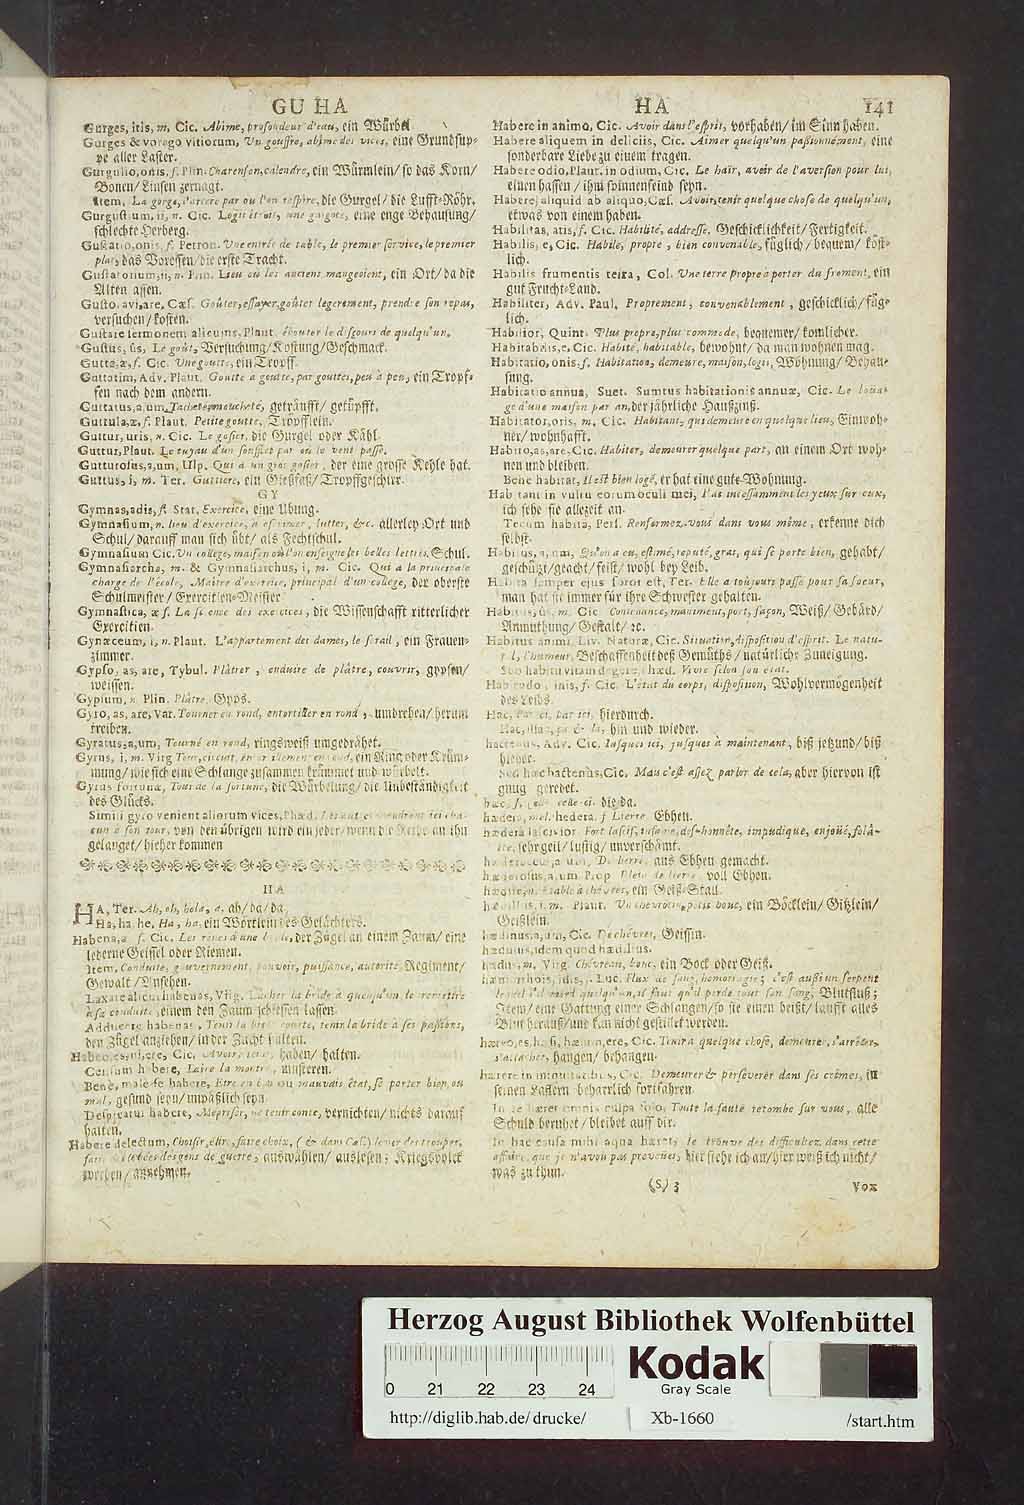 GU HA
HA
141
Gurges, itis, m, Cic. Abime, profondeur d'eau, ein Würbel
Gurges & vorago vitiorum, Un gouffre, abime des vices, eine Grundsup-
pe aller Laster.
Gurgulio, onis, f. Plin. Charenson, calendre, ein Würmlein/ so das Korn/
Bonen/ Linsen zernagt.
Item, La gorge, l'artere par ou l'on respire, die Gurgel/ die Lufft-Röhr.
Gurgustium, ii, n. Cic. Logis étroit, une gargote, eine enge Behausung/
schlechte Herberg.
Gustatio, onis, f. Petron. Une entrée de table, le premier service, le premier
plat, das Voressen/ die erste Tracht.
Gustatorium, ii, n. Plin. Lieu où les anciens mangeoient, ein Ort/ da die
Alten assen.
Gusto, avi, are, Cæs. Goûter, essayer, goûter legerement, prendre son repas,
versuchen/ kosten.
Gustare sermonem alicujus, Plaut. écouter le discours de quelqu'un.
Gustus, ûs, Le goût, Versuchung/ Kostung/ Geschmack.
Gutta, æ, f. Cic. Une goutte, ein Tropff.
Guttatim, Adv. Plaut. Goutte à goutte, par gouttes, peu à peu, ein Tropf-
fen nach dem andern.
Guttatus, a, um, Tacheté, moucheté, geträufft/ getüpfft.
Guttula, æ, f. Plaut. Petite goutte, Tröpfflein.
Guttur, uris, n. Cic. Le gosier, die Gurgel oder Kähl.
Guttur, Plaut. Le tuyau d'un soufflet par où le vent passe.
Gutturosus, a, um, Ulp. Qui a un gros gosier, der eine grosse Kehle hat.
Guttus, i, m. Ter. Guttiere, ein Gießfaß/ Tropffgeschirr.
GY
Gymnas, adis, f. Stat. Exercice, eine Ubung.
Gymnasium, n. lieu d'exercice, à escrimer, lutter, &c. allerley Ort und
Schul/ darauff man sich übt/ als Fechtschul.
Gymnasium Cic. Un college, maison où l'on enseigne les belles lettres, Schul.
Gymnasiarcha, m. & Gymnasiarchus, i, m. Cic. Qui a la principale
charge de l'école, Maître d'exercice, principal d'un college, der oberste
Schulmeister/ Exercitien-Meister
Gymnastica, æ f. La science des exercices, die Wissenschafft ritterlicher
Exercitien.
Gynæceum, i, n. Plaut. L'appartement des dames, le serail, ein Frauen-
zimmer.
Gypso, as, are, Tybul. Plâtrer, enduire de plâtre, couvrir, gypsen/
weissen.
Gypsum, n. Plin. Plâtre, Gyps.
Gyro, as, are, Var. Tourner en rond, entortiller en rond, umdrehen/ herum
treiben.
Gyratus, a, um, Tourné en rond, ringsweiß umgedrähet.
Gyrus, i, m. Virg Tour, circuit, ein Ring oder Krüm-
mung/ wie sich eine Schlange zusammen krümmet und würbelt.
Gyrus fortunæ, Tour de la fortune, die Würbelung/ die Unbeständigkeit
des Glücks.
Simili gyro venient aliorum vices, Phæd.
cun à son tour, von den übrigen wird ein jeder/ wenn die Reihe an ihn
gelanget/ hieher kommen
HA
HA, Ter. Ah, oh, hola, a. ah/ da/ da.
Ha, ha, he, Ha, ha, ein Wörtlein des Gelächters.
Habena, æ f. Cic. Les renes d'une bride, der Zügel an einem Zaum/ eine
lederne Geissel oder Riemen.
Item, Conduite, gouvernement, pouvoir, puissance, autorité, Regiment/
Gewalt/ Ansehen.
Laxare alicui habenas, Virg. Lacher la bride à quelqu'un, le remettre
à sa conduite, einem den Zaum schiessen lassen.
Adducere habenas, Tenir la bride courte, tenir la bride à ses passions,
den Zügel anziehen/ in der Zucht halten.
Habeo, es, ui, ere, Cic. Avoir, tenir, haben/ halten.
Censum habere, Faire la montre, mustern.
Bene, male se habere, Etre en bon ou mauvais état, se porter bien, ou
mal, gesund seyn/ unpäßlich seyn.
Despicatui habere, Mepriser, ne tenir conte, vernichten/ nichts darauf
halten.
Habere delectum, Choisir, élire, faire choix, (& dans Cæs.) lever des troupes,
faire élite des gens de guerre, auswählen/ auslesen; Kriegsvolck
werben/ annehmen.
Habere in animo, Cic. Avoir dans l'esprit, vorhaben/ im Sinn haben.
Habere aliquem in deliciis, Cic. Aimer quelqu'un passionnément, eine
sonderbare Liebe zu einem tragen.
Habere odio, Plaut. in odium, Cic. Le haïr, avoir de l'aversion pour lui,
einen hassen/ ihm spinnenfeind seyn.
Habere, aliquid ab aliquo, Cæs. Avoir, tenir quelque chose de quelqu'un,
etwas von einem haben.
Habilitas, atis, f. Cic. Habilité, addresse. Geschicklichkeit/ Fertigkeit.
Habilis, e, Cic. Habile, propre, bien convenable, füglich/ bequem/ köst-
lich.
Habilis frumentis terra, Col. Une terre propre à porter du froment, ein
gut Frucht-Land.
Habiliter, Adv. Paul. Proprement, convenablement, geschicklich/ füg-
lich.
Habilior, Quint. Plus propre, plus commode, bequemer/ komlicher.
Habitabilis, e, Cic. Habité, habitable, bewohnt/ da man wohnen mag.
Habitatio, onis, f. Habitation, demeure, maison, logis, Wohnung/ Behau-
sung.
Habitatio annua, Suet. Sumtus habitationis annuæ, Cic. Le loua-
ge d'une maison par an, der jährliche Haußzinß.
Habitator, oris, m. Cic. Habitant, qui demeure en quelque lieu, Einwoh-
ner/ wohnhafft.
Habito, as, are, Cic. Habiter, demeurer quelque part, an einem Ort woh-
nen und bleiben.
Bene habitat, Il est bien logé, er hat eine gute Wohnung.
Habitant in vultu eorum oculi mei, J'ai incessamment les yeux sur eux,
ich sehe sie allezeit an.
Tecum habita, Pers. Renfermez-vous dans vous même, erkenne dich
selbst.
Habitus, a, um, Qu'on a eu, estimé, reputé, gras, qui se porte bien, gehabt/
geschätzt/ geacht/ feist/ wohl bey Leib.
Habita semper ejus soror est, Ter. Elle a toujours passé pour sa soeur,
man hat sie immer für ihre Schwester gehalten.
Habitus, ûs, m. Cic Contenance, maniment, port, façon, Weiß/ Gebärd/
Anmuthung/ Gestalt/ ec.
Habitus animi, Liv. Naturæ, Cic. Situation, disposition d'esprit. Le natu-
rel, l'humeur, Beschaffenheit deß Gemüths/ natürliche Zuneigung.
Suo habitu vitam degere, Phæd. Vivre selon son état.
Habitudo, inis, f. Cic. L'état du corps, disposition, Wohlvermögenheit
des Leibs.
Hac, Par ci, par ici, hierdurch.
Hac, illac, çà & là, hin und wieder.
hactenus, Adv. Cic. Jusques ici, jusques à maintenant, biß jetzund/ biß
hieher.
Sed hæc hactenus, Cic. Mais c'est assez parler de cela, aber hiervon ist
gnug geredet.
hæc, f. celle, celle-ci. die/ da.
hædera, mel. hedera, f. Lierre, Ebheu.
hædera lascivior Fort lascif, infame, des-honnête, impudique, enjoüé, folâ-
tre, sehr geil/ lustig/ unverschämt.
hæderaceus, a, um, De lierre, aus Ebheu gemacht.
hæderosus, a, um Prop. Plein de lierre, voll Ebheu.
hædile, n. Etable à chévres, ein Geiß-Stall.
hædillus, i, m. Plaut. Un chevreau, petit bouc, ein Böcklein/ Gitzlein/
Geißlein.
hædinus, a, um, Cic. De chévres, Geissin.
hædulus, idem quod hædillus.
hædus, m. Virg. Chévreau, bouc, ein Bock oder Geiß.
hæmorrhois, idis, f. Luc. Flux de sang, hemorragie; c'est aussi un serpent
lequel s'il mord quelqu'un, il faut qu'il perde tout son sang, Blutfluß;
Item/ eine Gattung einer Schlangen/ so sie einen beißt/ laufft alles
Blut herauß/ und kan nicht gestillet werden.
hæreo, es, hæsi, hæsum, ere, Cic. Tenir à quelque chose, demeurer, s'arrêter,
s'attacher, hangen/ behangen.
hærere in iniquitatibus, Cic. Demeurer & perseverer dans ses crimes, in
seinen Lastern beharrlich fortfahren.
In te hæret omnis culpa solo, Toute la faute retombe sur vous, alle
Schuld beruhet/ bleibet auff dir.
In hac causa mihi aqua hæret, Je trouve des difficultez dans cette
affaire, que je n'avois pas prevenües, hier stehe ich an/ hier weiß ich nicht/
was zu thun.
(S) 3
Vox
Herzog August Bibliothek Wolfenbüttel
Kodak
Gray Scale
0 21 22 23 24
http://diglib.hab.de/drucke/ Xb-1660 /start.htm